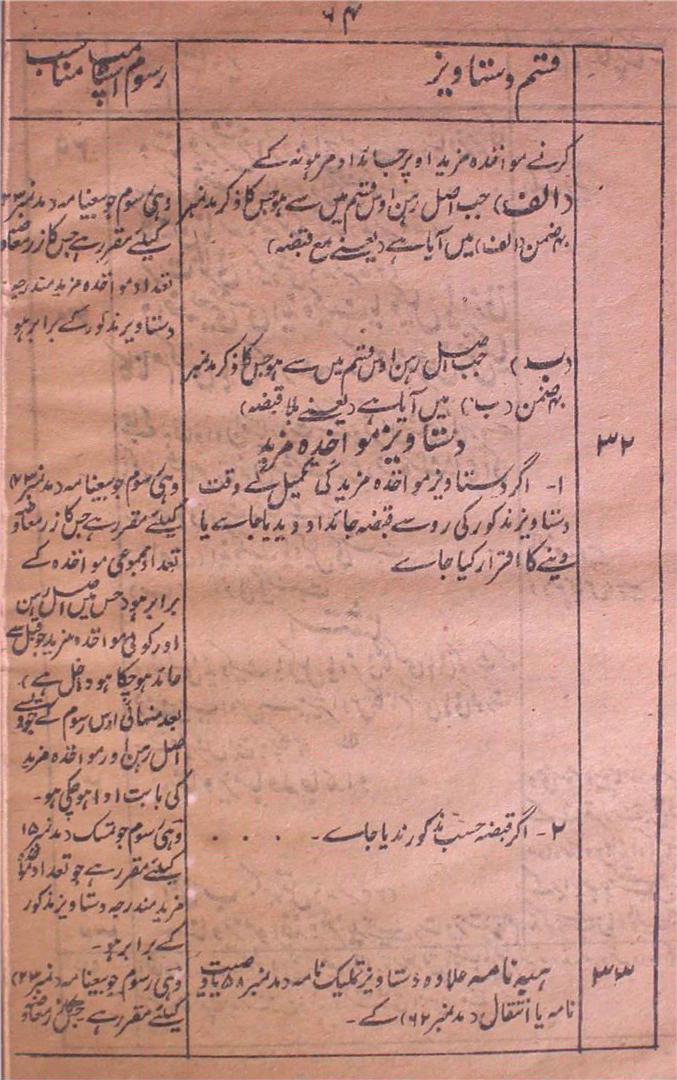 ۶۴
قسم دستاویز
رسوم اسٹامپ مناسب
کرنے مواخذہ مزید اوپر جائداد مرہونہ کے
(الف) جب اصل رہن اوس قسم میں سے ہو جس کا ذکر مد نمبر
بضمن (الف) میں آیا ہے (یعنے مع قبضہ)
وہی رسوم جو بیعنامہ (مد نمبر ۲۳
کیلئے مقرر ہے جس کا زر معاوضہ
تعداد مواخذہ مزید مندرجہ
دستاویز مذکور کے برابر ہو
(ب) جب اصل رہن اوس قسم میں سے ہو جس کا ذکر مد نمبر
بضمن (ب) میں آیا ہے (یعنے بلا قبضہ)
۳۲
دستاویز مواخذہ مزید
۱- اگر دستاویز مواخذہ مزید کی تکمیل کے وقت
دستاویز مذکور کی رو سے قبضہ جائداد دیدیا جاے یا
دینے کا اقرار کیا جاے
وہی رسوم جو بیعنامہ (مد نمبر ۲۳)
کیلئے مقرر ہے جس کا زر معاوضہ
تعداد مجموعی مواخذہ کے
برابر ہو (جس میں اصل رہن
اور کوئی مواخذہ مزید جو قبل سے
عائد ہو چکا ہو داخل ہے)
بعد منہائی اوس رسوم کے جو
اصل رہن اور مواخذہ مزید
کی بابت ادا ہو چکی ہو۔
۲- اگر قبضہ حسب مذکور ندیا جاے ۔ . . . .
وہی رسوم جو تمسک (مد نمبر ۱۵
کیلئے مقرر ہے جو تعداد مواخذہ
مزید مندرجہ دستاویز مذکور
کے برابر ہو۔
۳۳
ہبہ نامہ علاوہ دستاویز تملیک نامہ (مد نمبر ۵۸) یا وصیت
نامہ یا انتقال (مد نمبر ۶۲) کے ۔
وہی رسوم جو بیعنامہ (مد نمبر ۲۳)
کیلئے مقرر ہے جس کا زر معاوضہ